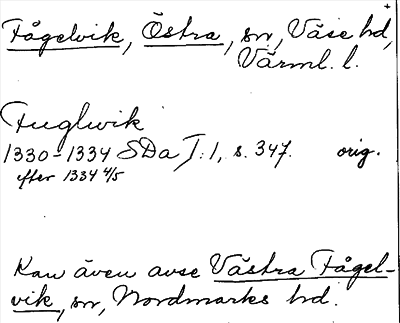 Fågelvik, Östra, sn, Väse hd,
Värml. l.
Fuglwik
1330-1334 SDa I:1, s. 347. orig.
efter 1334 4/5
Kan även avse Västra Fågel-
vik, sn, Nordmarks hd.